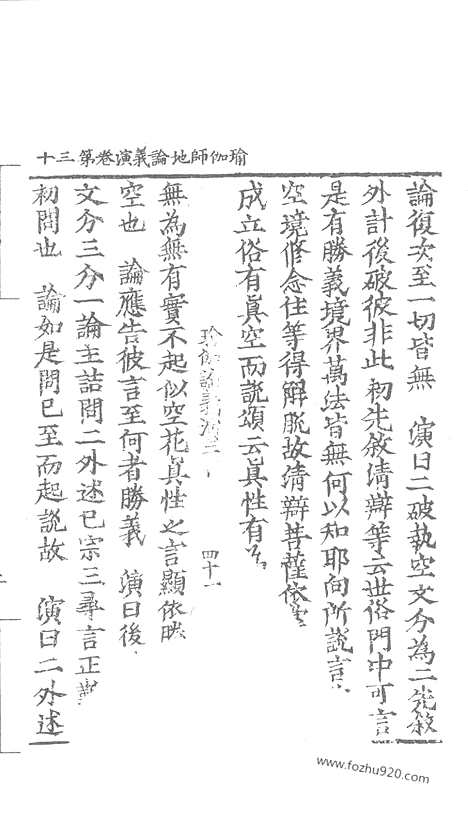 瑜伽師地論義演卷第三十
論復次至一切皆無　演曰二破執空文分為二先敘
外計後破彼非此初先敘清辯等云世俗門中可言
是有勝義境界萬法皆無何以知耶向所說言
空境修念住等得解脫故清辯菩薩依
成立俗有真空而說頌云真性有
四十一
無為無有實不起似空花真性之言顯依
空也　論應告彼言至何者勝義　演曰後
文分三分一論主詰問二外述已宗三尋言正
初問也　論如是問已至而起說故　演曰二外述
www.fozhu920.com